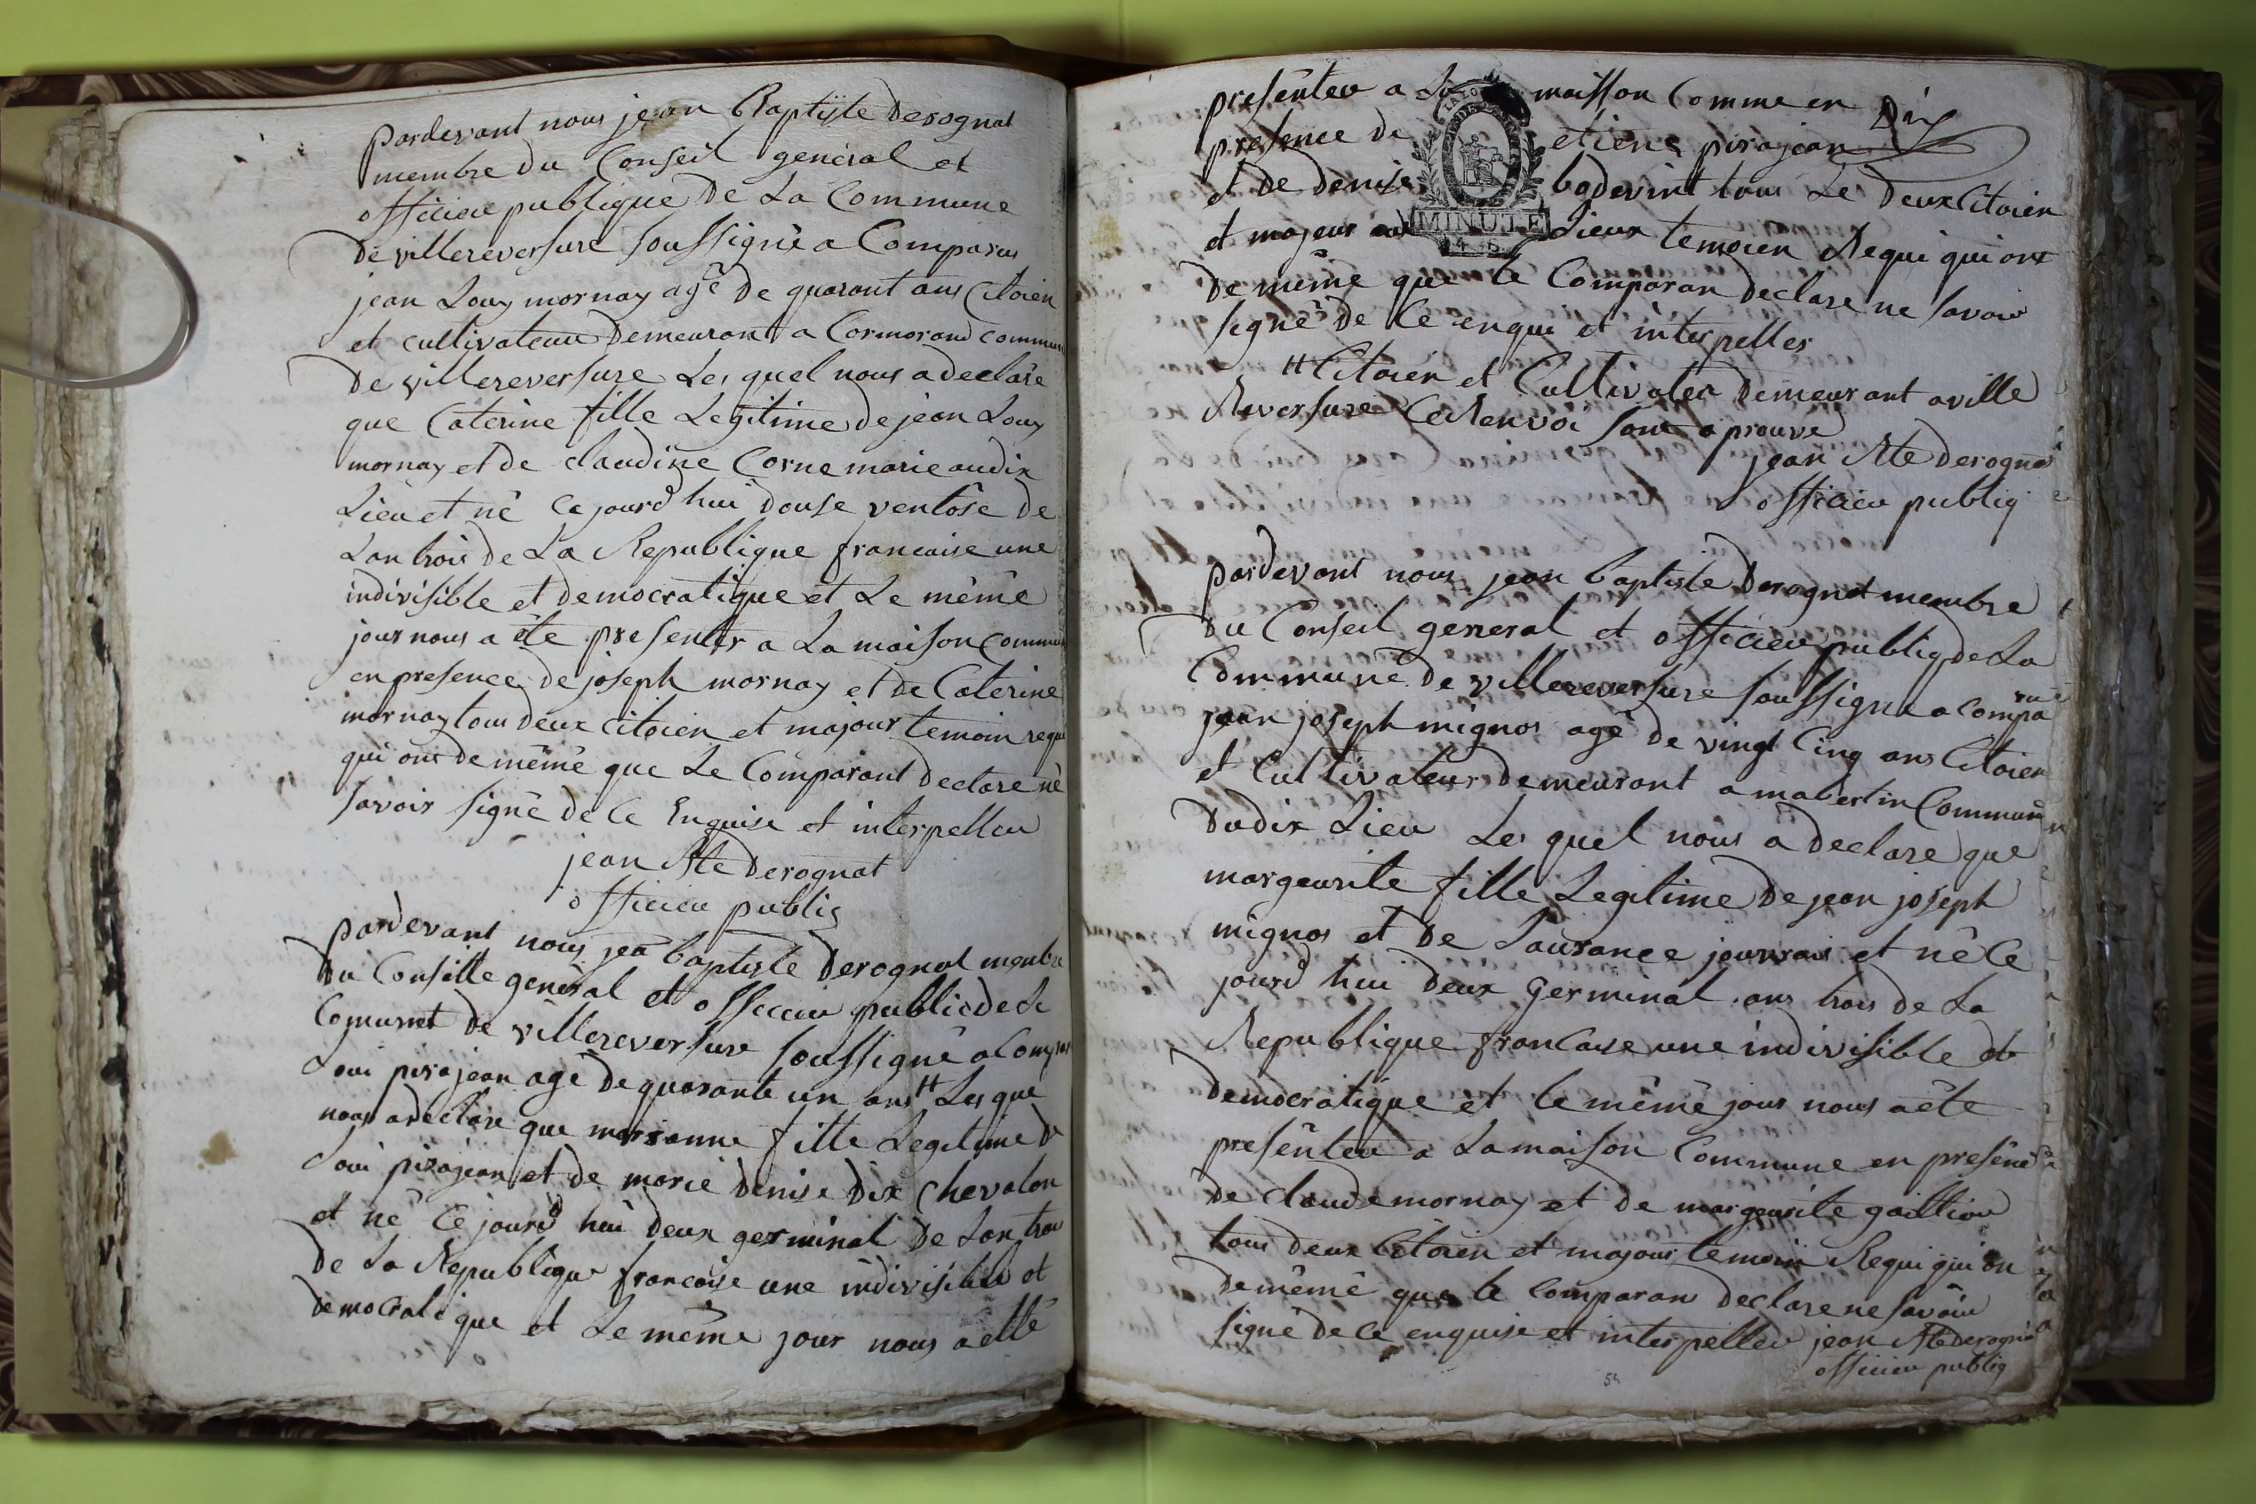 pardevant nous jean Baptiste Derognat
membre du Conseil general et
officier publique De La Commune
De villereversure soussigné a Comparus
jean Louy mornay agé De quarant ans Citoien
et cultivateur Demeurant a Cormorand commun
De villereversure Les quel nous a declaré
que Caterine fille Legitime de jean Louy
mornay et de claudine Corne marie audix
Lieu et né ce jourd hui douse ventôse De
Lan trois de La Republique francaise une
indivisible et democratique et Le même
jour nous a éte presenter a La maison commun
en presence de joseph mornay et de Caterine
mornay tous deux citoien et majour temoin requi
qui ont de même que Le Comparant declare né
savoir signé de Ce Enquise et interpeller
jean Bte Derognat
officier public
pardevant nous jea baptiste Derognat membre
Du Conseille general et officier public de La
Comunet de villereversure soussigné a Compar
Loui pirajean agé De quarante un ans # Les que
nous a declare que marianne fille Legitime De
Loui pirajean et de marie denise Dix Chevalon
et né Ce jourd hui deux germinal De Lan trou
De La Republique francaise une indivisible et
democratique et Le même jour nous a etté
presenter a La maisson Comme en Dix
presence de etiene pirajean
et De denise bodevint tous Le Deux Citoien
et majeur aud Lieux temoien Requi qui ont
De même que le Comparan declare ne savoir
signé De Ce enqui et interpeller
# Citoien et Cultivater Demeurant a ville
Reversure Ce Renvoi sont aprouve
jean Bte Derognat
officier publiq
MINUTE
pardevant nous jean baptiste Derognat membre
Du Conseil general et officier publiq de La
Commune De villereversure soussigne a compa rue
jean joseph mignos agé De vingt Cinq ans Citoien
et Cultivateur demeurant a mabertin Commune
Dudix Lieu Les quel nous a declare que
margeurite fille Legitime De jean joseph
mignos et De Laurance et né Ce
jourd hui deux germinal ans trois de La
Republique francaise une indivisible et
democratique et le même jour nous a éte
presenter a La maison Commune en presence
De claude mornay et de margeurite
tous deux Citoien et majour temoin Requi qui on
De même que le comparan declare ne savoir
signé de Ce enquise et interpeller jean Bte Derognat
officier publiq